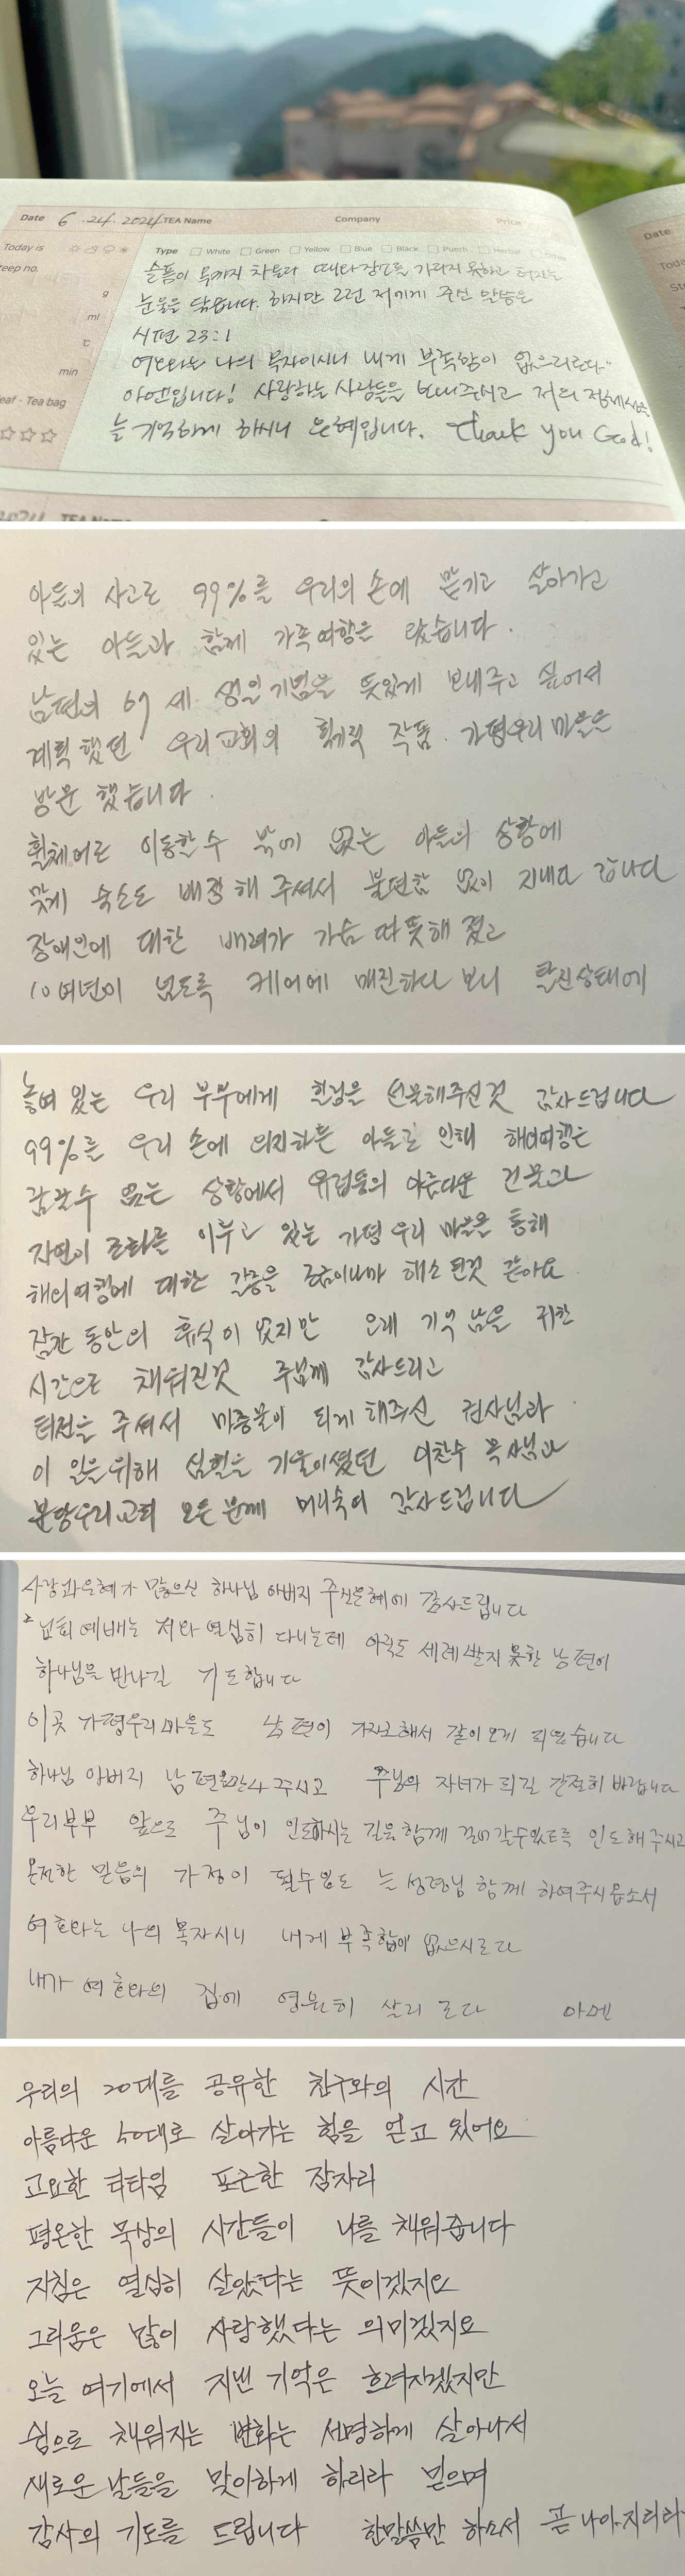 Date 6.24.2024 TEA Name Company Price
Date
Today is Type White Green Yellow Blue Black Puerh Herbal
eep no.
슬픔이 목까지 차올라 때와 장소를 가리지 못하고 터지는
g
눈물을 닦습니다. 하지만 그런 저에게 주신 말씀은
ml
시편 23:1
℃
여호와는 나의 목자이시니 내게 부족함이 없으리로다"
min
아멘입니다! 사랑하는 사람들을 보내주시고 저의
eaf · Tea bag
는 기억하게 하시니 은혜입니다. Thank you God!
2024 TEA Name
아들의 사고로 99%를 우리의 손에 맡기고 살아가고
있는 아들과 함께 가족여행을 왔습니다.
남편의 67세 생일기념을 뜻있게 보내주고 싶어서
계획했던 우리교회의 획기적 작품. 가평우리마을을
방문 했습니다.
휠체어로 이동할수 밖에 없는 아들의 상황에
맞게 숙소도 배정해 주셔서 불편함 없이 지내다 갑니다
장애인에 대한 배려가 가슴 따뜻해 졌고
10여년이 넘도록 케어에 매진하다 보니 탈진상태에
놓여 있는 우리 부부에게 힐링을 선물해주신것 감사드립니다
99%를 우리 손에 의지하는 아들로 인해 해외여행은
꿈꿀수 없는 상황에서 유럽풍의 아름다운 건물과
자연이 조화를 이루고 있는 가평 우리 마을을 통해
해외여행에 대한 갈증을 조금이나마 해소 된것 같아요
잠깐 동안의 휴식이 었지만 오래 기억 남을 귀한
시간으로 채워진것 주님께 감사드리고
터전을 주셔서 마중물이 되게 해주신 권사님과
이 일을 위해 심혈을 기울이셨던 이찬수 목사님과
분당우리교회 모든 분께 머리숙여 감사드립니다
사랑과은혜가 많으신 하나님 아버지 주신은혜에 감사드립니다
교회 예배는 저와 열심히 다니는데 아직도 세례받지 못한 남편이
하나님을 만나길 기도합니다
이곳 가평우리마을도 남편이 가자고해서 같이오게 되었습니다
하나님 아버지 남편을만나 주시고 주님의 자녀가 되길 간절히 바랍니다
우리부부 앞으로 주님이 인도하시는 길을 함께 걸어 갈수있도록 인도해 주시고
온전한 믿음의 가정이 될수있도 는 성령님 함께 하여주시옵소서
여호와는 나의 목자시니 내게 부족함이 없으시로다
내가 여호와의 집에 영원히 살리 로다 아멘
우리의 20대를 공유한 친구와의 시간
아름다운 50대로 살아가는 힘을 얻고 있어요
고요한 티타임 포근한 잠자리
평온한 묵상의 시간들이 나를 채워줍니다
지침은 열심히 살았다는 뜻이겠지요
그리움은 많이 사랑했다는 의미겠지요
오늘 여기에서 지낸 기억은 흐려지겠지만
쉼으로 채워지는 변화는 선명하게 살아나서
새로운 날들을 맞이하게 하리라 믿으며
감사의 기도를 드립니다 한말씀만 하소서 곧 나아지리라